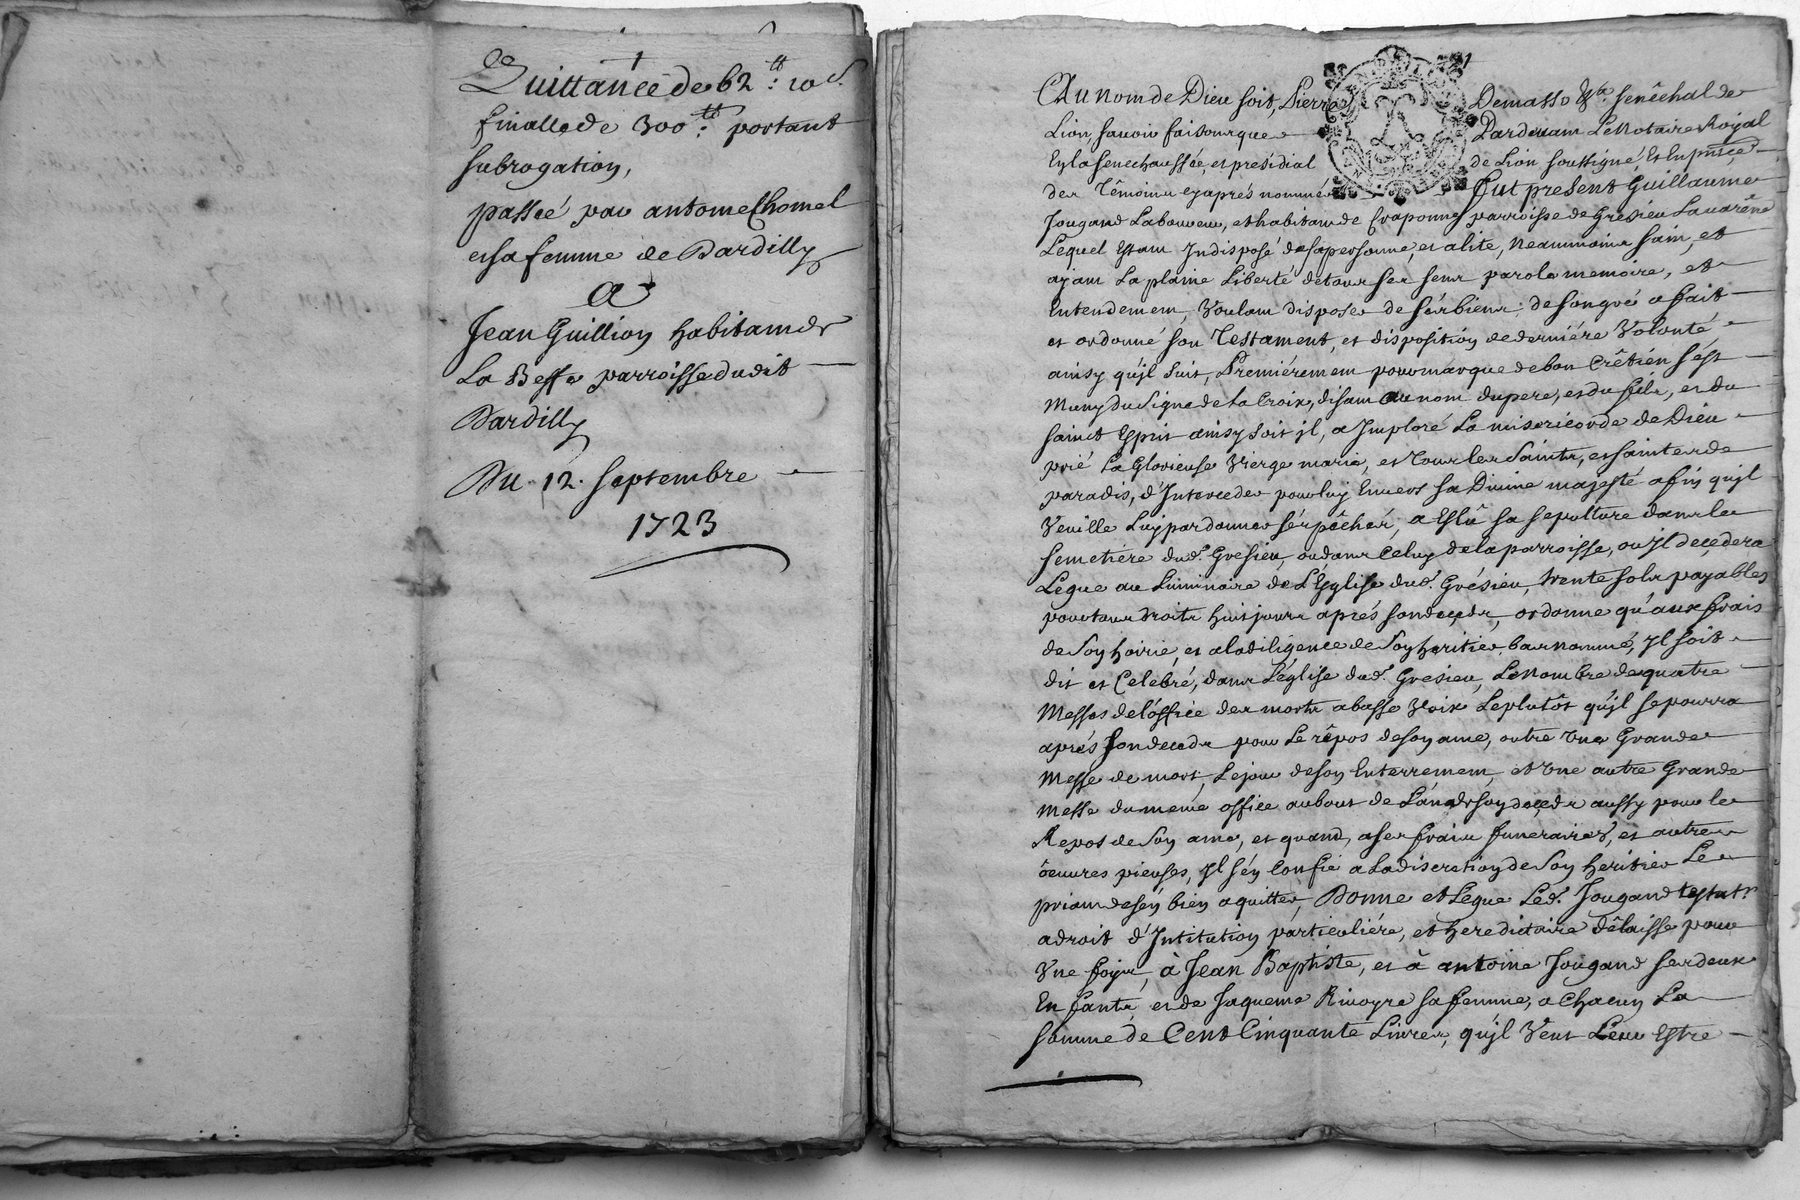 Quittance de 62 tt: 10 s.
finalle de 300 tt: portant
subrogation,
passeé par antome Chomel
et sa femme de Dardilly
A
Jean Guillion habitam de
La Beffe parroisse dudit
Dardilly
Du 12. septembre
1723
Au nom de Dieu soit, Pierre Demasso senêchal de
Lion, sauoir faisons que Pardeuam Le Notaire Royal
En la senechaussée, et presidial de Lion soussigné Et En pnce
des Têmoins cy aprés nommés fut present Guillaume
Jougand Laboureur, et habitam de Craponne parroisse de Grésieu Lauaréne
Lequel Estam Indisposé de sa personne, et alité, neammoins sain, et
ayam La plaine Liberté de tous ses sens parole memoire, et
Entendemem, Voulam disposer de sés biens; de son gré a fait
et ordonné son Testament, et disposition de derniére Volonté
ainsy qu'jl suit, Premiérement pour marque de bon Crêtién s'ést
Muny du Signe de la Croix, disam au nom du pere, et du fils, et du
sainct Esprit ainsy soit jl, a Imploré La misericorde de Diéu
prié La Glorieuse Vierge marie, et tous les Saints, et saintes de
paradis, d'Interceder pour luy Enuers sa Diuine majesté afin qu'jl
Veuille Luy pardonner sés pêchés, a Eslû sa sepulture dans le
semetiére dud. Gresieu, ou dans celuy de la parroisse, ou Jl deçedera
Legue au Luminaire de L'Eglise dud. Grésieu, trente sols payables
pour tous droits huit jours aprés son decéds, ordonne qu'aux frais
de Soy hoirie, et a la diligence de Soy heritier bas nommé, Jl soit
dit et Celebré, dans L'église dud. Gresieu, Le nombre de quatre
Messes de l'office des morts a basse Voix Le plutôt qu'jl se pourra
aprés son decéds pour Le rêpos de soy ame, outre Une Grande
Messe de mort, Le jour de soy Enterremem, et Une autre Grande
Messe du meme office au bout de L'an de soy deçéds aussy pour le
Repos de Soy ame, et quand, a ses frais funeraires, et autres
oeuures pieuses, Jl s'en Confie a La discretion de Soy heritier Le
priam de s'én bién aquitter, Donne et Legue Led. Jougand testatr
a droit d'Intitution particuliére, et hereditaire délaisse pour
Vne foys, à Jean Baptiste, et à antoine Jougand ses deux
Enfants, et de Jaqueme Riuoyre sa femme, a Chacun La
somme de Cent Cinquante Liures, qu'jl Veut Leur Estre